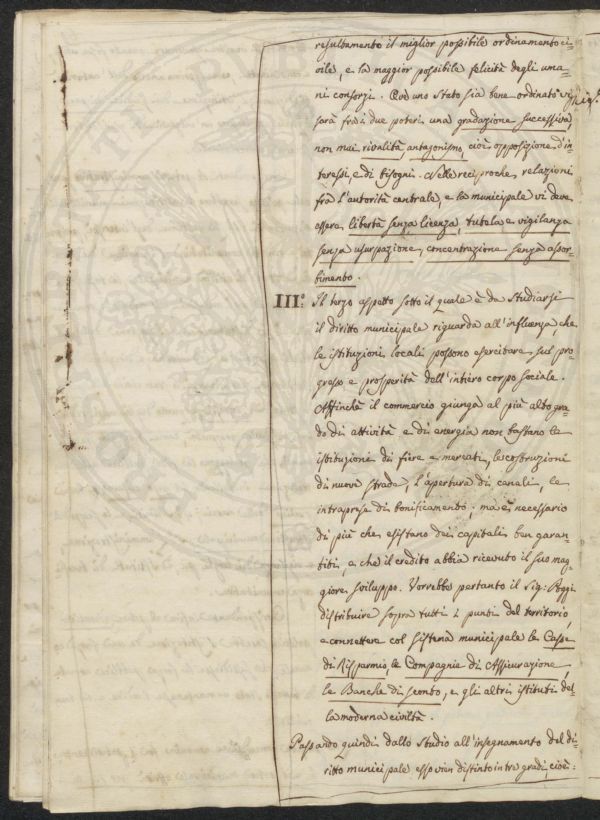 resultamento il miglior possibile ordinamento ci=
vile, e la maggior possibile felicità degli uma=
ni consorzi. Ove uno Stato sia bene ordinato vi
sarà fra i due poteri una gradazione successiva,
non mai rivalità, antagonismo, cioè opposizione d'in=
teressi, e di bisogni. Nelle reciproche relazioni
frà l'autorità centrale, e la municipale vi deve
essere libertà senza licenza, tutela e vigilanza
senza usurpazione, concentrazione senza assor=
bimento.
III.° Il terzo aspetto sotto il quale è da studiarsi
il diritto municipale riguarda all'influenza, che
le istituzioni locali possono esercitare sul pro=
gresso e prosperità dell'intiero corpo sociale.
Affinchè il commercio giunga al più alto gra=
do di attività e di energia non bastano le
istituzioni di fiere e mercati, le costruzioni
di nuove strade, l'apertura di canali, le
intraprese di bonificamento; ma è necessario
di più che esistano dei capitali ben garan=
titi, e che il credito abbia ricevuto il suo mag=
giore sviluppo. Vorrebbe pertanto il Sig: Poggi
distribuire sopra tutti i punti del territorio,
e connettere col sistema municipale le Casse
di Risparmio, le Compagnie di Assicurazione,
le Banche di sconto, e gli altri istituti del=
la moderna civiltà.
Passando quindi dallo Studio all'insegnamento del di=
ritto municipale esso vien distinto in tre gradi, cioè: